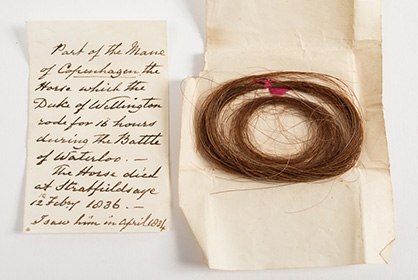 Part of the Mane
of Copenhagen the
Horse which the
Duke of Wellington
rode for 16 hours
during the Battle
of Waterloo. —
The Horse died
at Strathfieldsaye
12 Febry 1836. —
I saw him in April 1834